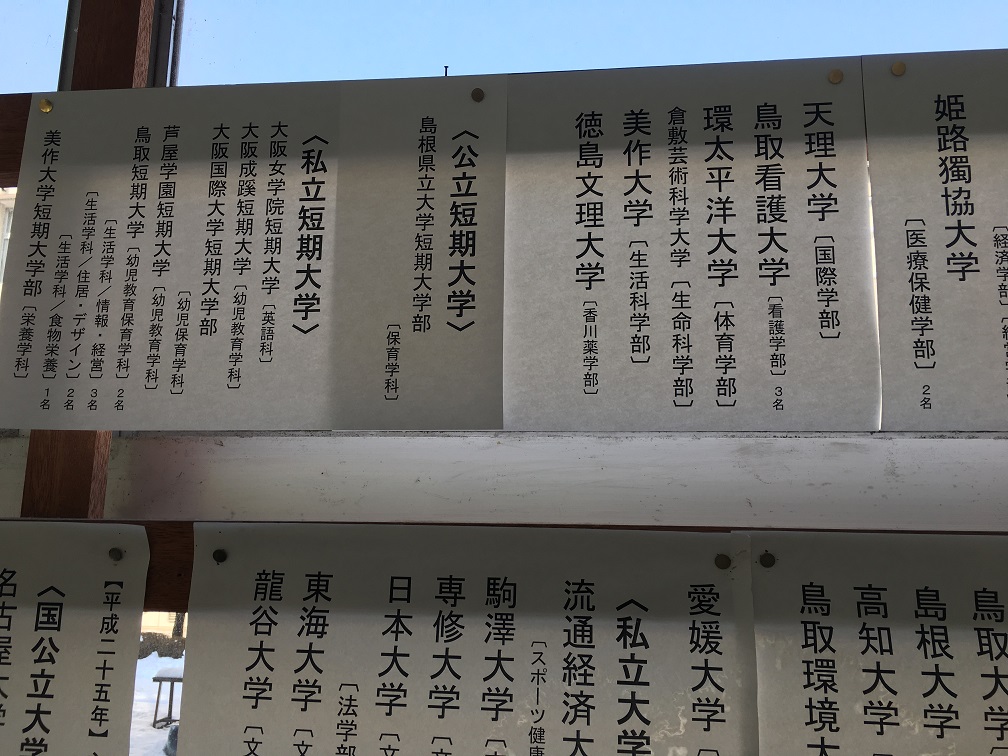 姫路獨協大学
〔医療保健学部〕 2名
天理大学 〔国際学部〕
鳥取看護大学 〔看護学部〕 3名
環太平洋大学 〔体育学部〕
倉敷芸術科学大学 〔生命科学部〕
美作大学 〔生活科学部〕
徳島文理大学 〔香川薬学部〕
〈公立短期大学〉
島根県立大学短期大学部
〔保育学科〕
〈私立短期大学〉
大阪女学院短期大学 〔英語科〕
大阪成蹊短期大学 〔幼児教育学科〕
大阪国際大学短期大学部
〔幼児保育学科〕
芦屋学園短期大学 〔幼児教育学科〕
鳥取短期大学 〔幼児教育保育学科〕 2名
〔生活学科/情報・経営〕 3名
〔生活学科/住居・デザイン〕 2名
〔生活学科/食物栄養〕 1名
美作大学短期大学部 〔栄養学科〕
鳥取大学
島根大学
高知大学
鳥取環境大
愛媛大学
〈私立大学
流通経済大
〔スポーツ健康
駒澤大学
専修大学
日本大学
〔法学部
東海大学
龍谷大学 〔文
【平成二十五年】
〈国公立大学
名古屋大学